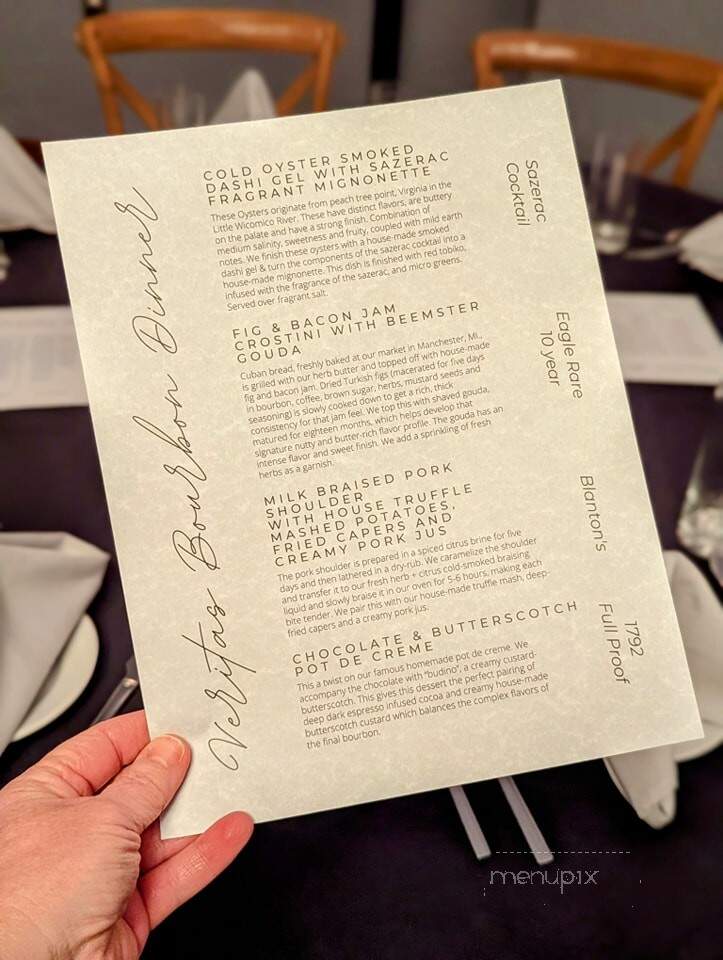 Veritas Bourbon Dinner
COLD OYSTER SMOKED
DASHI GEL WITH SAZERAC
FRAGRANT MIGNONETTE
These Oysters originate from peach tree point, Virginia in the
Little Wicomico River. These have distinct flavors, are buttery
on the palate and have a strong finish. Combination of
medium salinity, sweetness and fruity, coupled with mild earth
notes. We finish these oysters with a house-made smoked
dashi gel & turn the components of the sazerac cocktail into a
house-made mignonette. This dish is finished with red tobiko,
infused with the fragrance of the sazerac, and micro greens.
Served over fragrant salt.
Sazerac
Cocktail
FIG & BACON JAM
CROSTINI WITH BEEMSTER
GOUDA
Cuban bread, freshly baked at our market in Manchester, MI.,
is grilled with our herb butter and topped off with house-made
fig and bacon jam. Dried Turkish figs (macerated for five days
in bourbon, coffee, brown sugar, herbs, mustard seeds and
seasoning) is slowly cooked down to get a rich, thick
consistency for that jam feel. We top this with shaved gouda,
matured for eighteen months, which helps develop that
signature nutty and butter-rich flavor profile. The gouda has an
intense flavor and sweet finish. We add a sprinkling of fresh
herbs as a garnish.
Eagle Rare
10 year
MILK BRAISED PORK
SHOULDER
WITH HOUSE TRUFFLE
MASHED POTATOES,
FRIED CAPERS AND
CREAMY PORK JUS
The pork shoulder is prepared in a spiced citrus brine for five
days and then lathered in a dry-rub. We caramelize the shoulder
and transfer it to our fresh herb + citrus cold-smoked braising
liquid and slowly braise it in our oven for 5-6 hours, making each
bite tender. We pair this with our house-made truffle mash, deep-
fried capers and a creamy pork jus.
Blanton's
CHOCOLATE & BUTTERSCOTCH
POT DE CREME
This a twist on our famous homemade pot de creme. We
accompany the chocolate with "budino", a creamy custard-
butterscotch. This gives this dessert the perfect pairing of
deep dark espresso infused cocoa and creamy house-made
butterscotch custard which balances the complex flavors of
the final bourbon.
1792
Full Proof
menupix